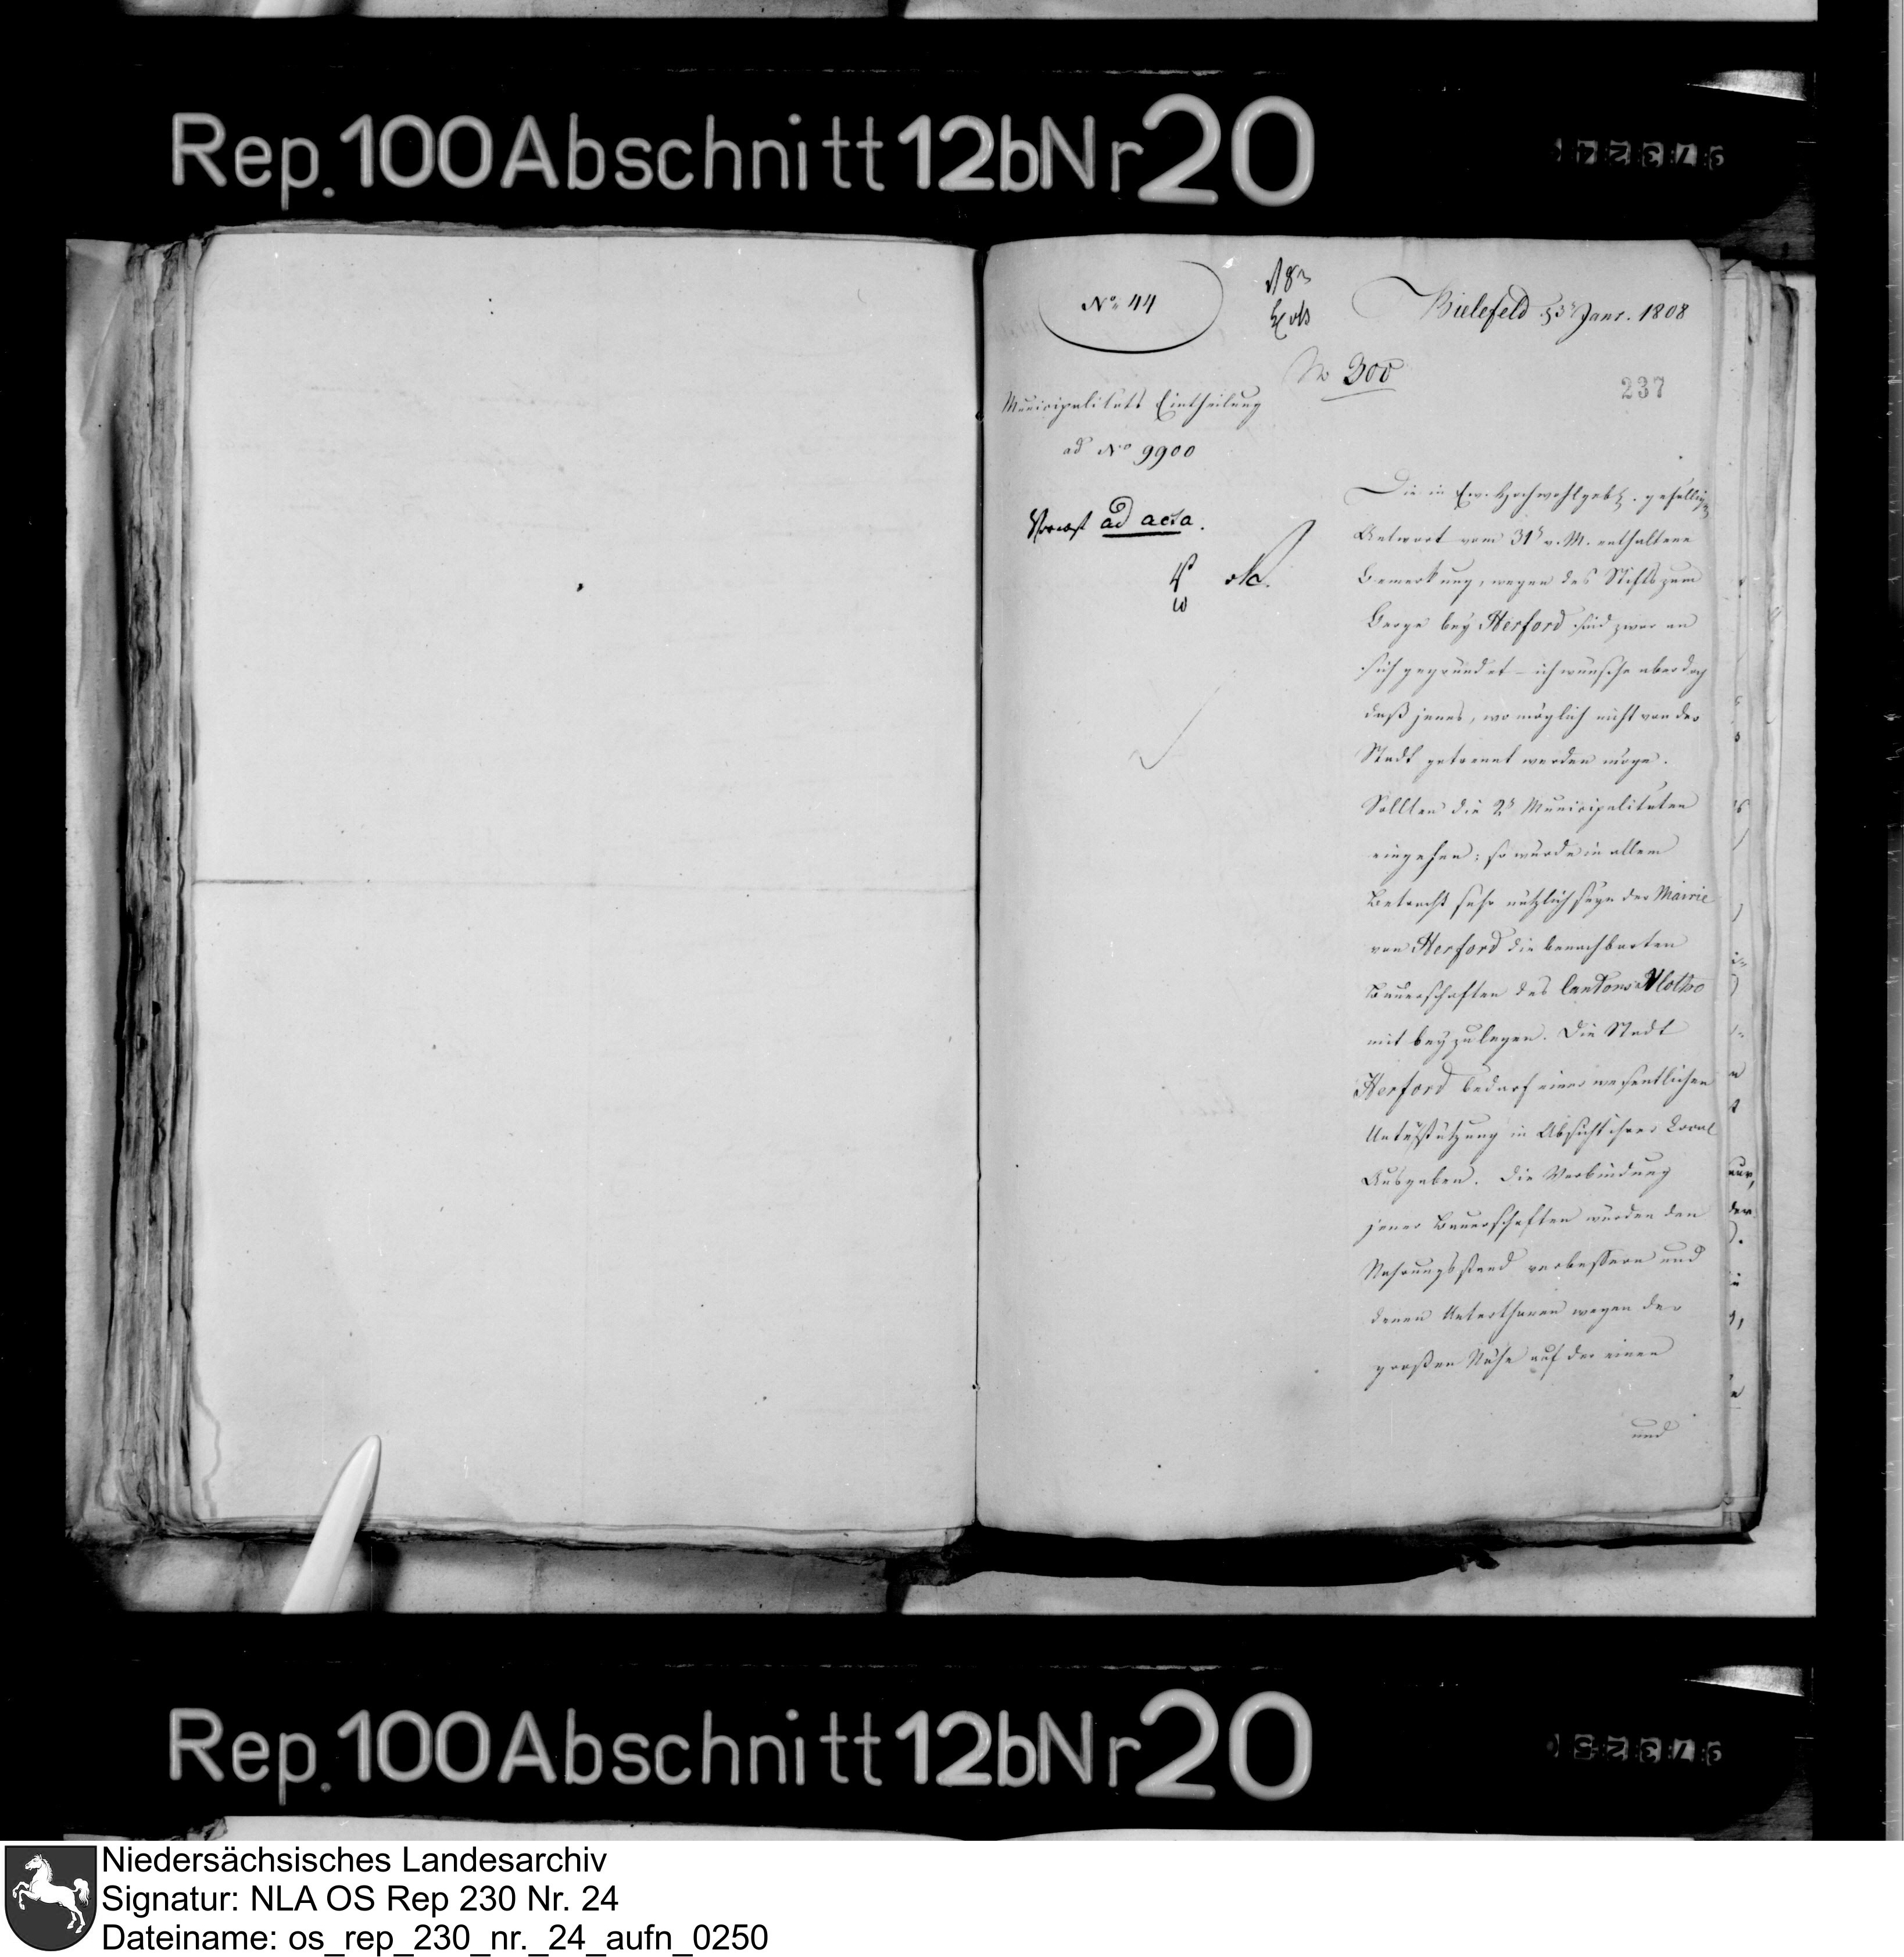 Rep. 100 Abschnitt 12b Nr 20
No 44
Bielefeld 3t Janr. 1808
No 300
237
Municipalitäts Eintheilung
ad No 9900
ad acta.
Die in Ew. Hochwohlgeb. gefälligen
Antwort vom 31t v. M. enthaltene
Bemerkung, wegen des Stifts zum
Berge bey Herford sind zwar an
sich gegründet – ich wünsche aber doch
daß jenes, wo möglich nicht von der
Stadt getrennt werden möge.
Sollten die 2t Municipalitäten
eingehen: so würde in allem
Betracht sehr nützlich seyn der Mairie
von Herford die benachbarten
Bauerschaften des Cantons Vlotho
mit beyzulegen. Die Stadt
Herford bedarf einer wesentlichen
Unterstützung in Absicht ihrer Local
Ausgaben. Die Verbindung
jener Bauerschaften würden den
Nahrungsstand verbessern und
denen Unterthanen wegen der
großen Nähe auf der einen
und
Rep. 100 Abschnitt 12b Nr 20
Niedersächsisches Landesarchiv
Signatur: NLA OS Rep 230 Nr. 24
Dateiname: os_rep_230_nr._24_aufn_0250